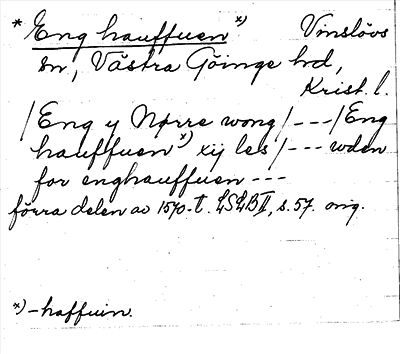 * Eng hauffuen *) Vinslövs
sn, Västra Göinge hd,
Krist. l.
/Eng y Nørre wong/---/Eng
hauffuen *) xij les/--- wden
for enghauffuen ---
förra delen av 1570-t. LSLB II, s. 57. orig.
*) -haffuin.